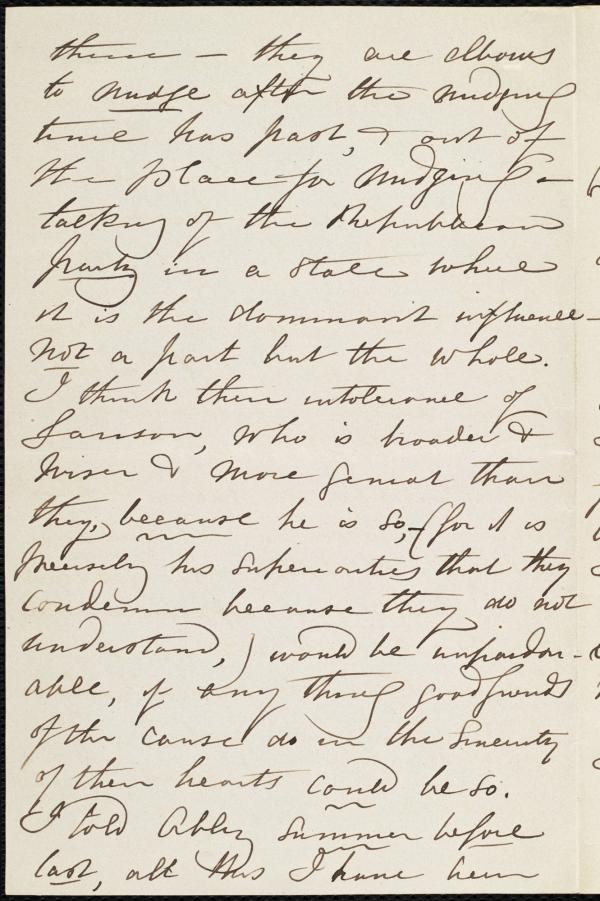 these — they are elbows
to nudge after the nudging
time has past, & out of
the place for nudging —
talking of the Republican
party in a state where
it is the dominant influence —
not a part but the whole.
I think their intolerance of
Garrison, who is broader &
wiser & more genial than
they, because he is so, — (for it is
precisely his superiorities that they
condemn because they do not
understand,) would be unpardon-
able, if any thing good friends
of the cause do in the sincerity
of their hearts could be so.
I told Abby summer before
last, all this I have been